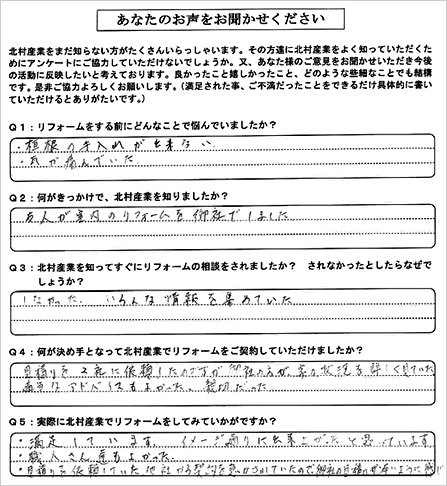 あなたのお声をお聞かせください
北村産業をまだ知らない方がたくさんいらっしゃいます。その方達に北村産業をよく知っていただくた
めにアンケートにご協力していただけないでしょうか。又、あなた様のご意見をお聞かせいただき今後
の活動に反映したいと考えております。良かったこと嬉しかったこと、どのような些細なことでも結構
です。是非ご協力よろしくお願いします。（満足された事、ご不満だったことをできるだけ具体的に書い
ていただけるとありがたいです。）
Q1：リフォームをする前にどんなことで悩んでいましたか？
・植根の手入れが出来ない
・瓦が痛んでいた
Q2：何がきっかけで、北村産業を知りましたか？
友人が室内のリフォームを御社でしました
Q3：北村産業を知ってすぐにリフォームの相談をされましたか？ されなかったとしたらなぜで
しょうか？
しなかった いろんな情報を集めていた
Q4：何が決め手となって北村産業でリフォームをご契約していただけましたか？
見積りを2社に依頼したのですが御社の方が、家の状況を詳しく見ていた
アドバイスもよかった、親切だった
Q5：実際に北村産業でリフォームをしてみていかがですか？
・満足しています。イメージ通りに出来上がったと思っています
・職人さん達もよかった。
・見積りを依頼していた他社から契約を急がされていたので御社の見積りが